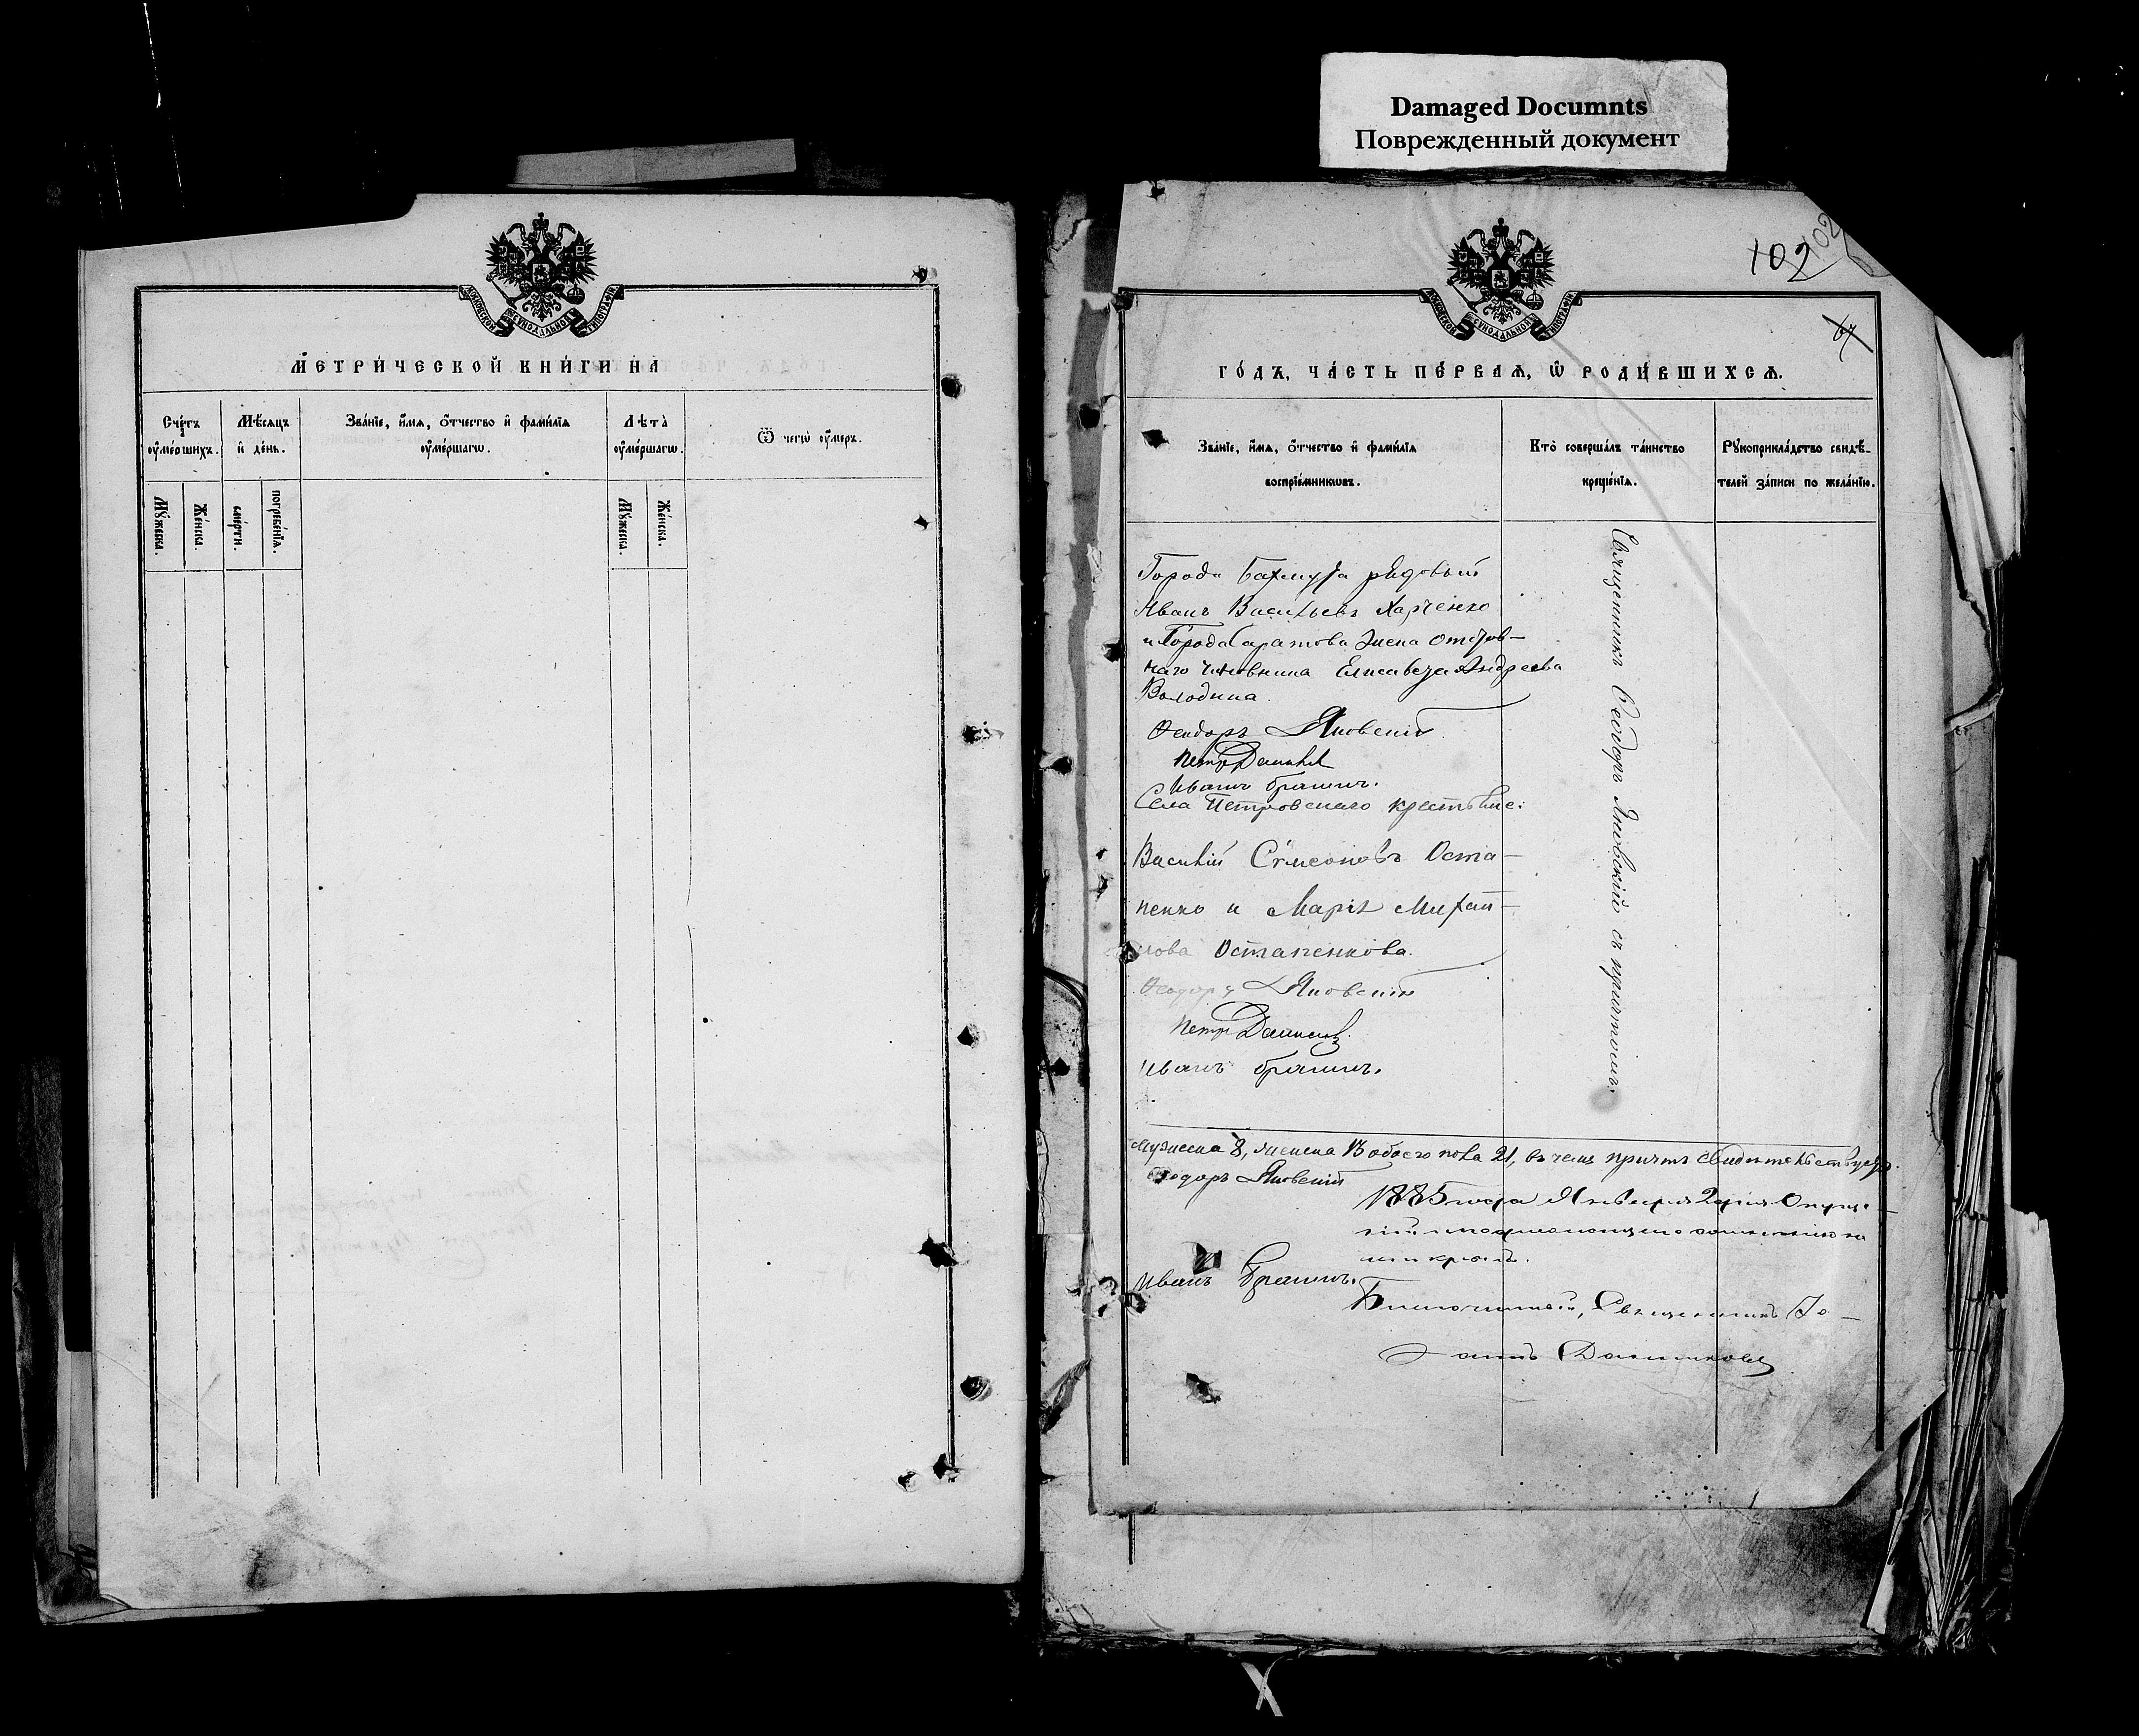 Damaged Documnts
Поврежденный документ
МОСКОВСКОЙ СѴНОДАЛЬНОЙ ТИПОГРАФІИ
МЕТРИ́ЧЕСКОЙ КНИ́ГИ НА
Сче́тъ ᲂу҆ме́ршихъ.
Мѣ́сяцъ и҆ де́нь.
Зва́нїе, и҆́мѧ, ѻ҆́тчество и҆ фами́лїѧ ᲂу҆ме́ршагѡ.
Лѣта̀ ᲂу҆ме́ршагѡ.
Ѿ чегѡ̀ ᲂу҆́меръ.
Мꙋ́жеска.
Же́нска.
сме́рти.
погребе́нїѧ.
Мꙋ́жеска.
Же́нска.
МОСКОВСКОЙ СѴНОДАЛЬНОЙ ТИПОГРАФІИ
102
102
ГО́ДЪ, ЧА́СТЬ ПЕ́РВАѦ, Ѡ҆ РОДИ́ВШИХСѦ.
Зва́нїе, и҆́мѧ, ѻ҆́тчество и҆ фами́лїѧ воспрїе́мникѡвъ.
Кто̀ соверша́лъ та́инство креще́нїѧ.
Рꙋкоприкла́дство свидѣ́-
телей за́писи по жела́нїю.
Города Бахмута рядовый
Иванъ Васильевъ Харченко
и Города Саратова жена отстав-
наго чиновника Елисавета Андреева
Володина.
Ѳеодоръ Яновскій
Петръ
Иванъ
Села Петровскаго крестьяне:
Василій Сѵмеоновъ Оста-
пенко и Марія Михаи-
лова Остапенкова.
Ѳеодоръ Яновскій
Петръ
Иванъ
Священникъ Ѳеодоръ Яновскій съ причтомъ.
Мужеска 8, женска 13 обоего пола 21, въ чемъ причтъ свидѣтельствуетъ.
Ѳеодоръ Яновскій
1885 года Января 2 дня
Иванъ
Благочинный, Священникъ Іо-
аннъ